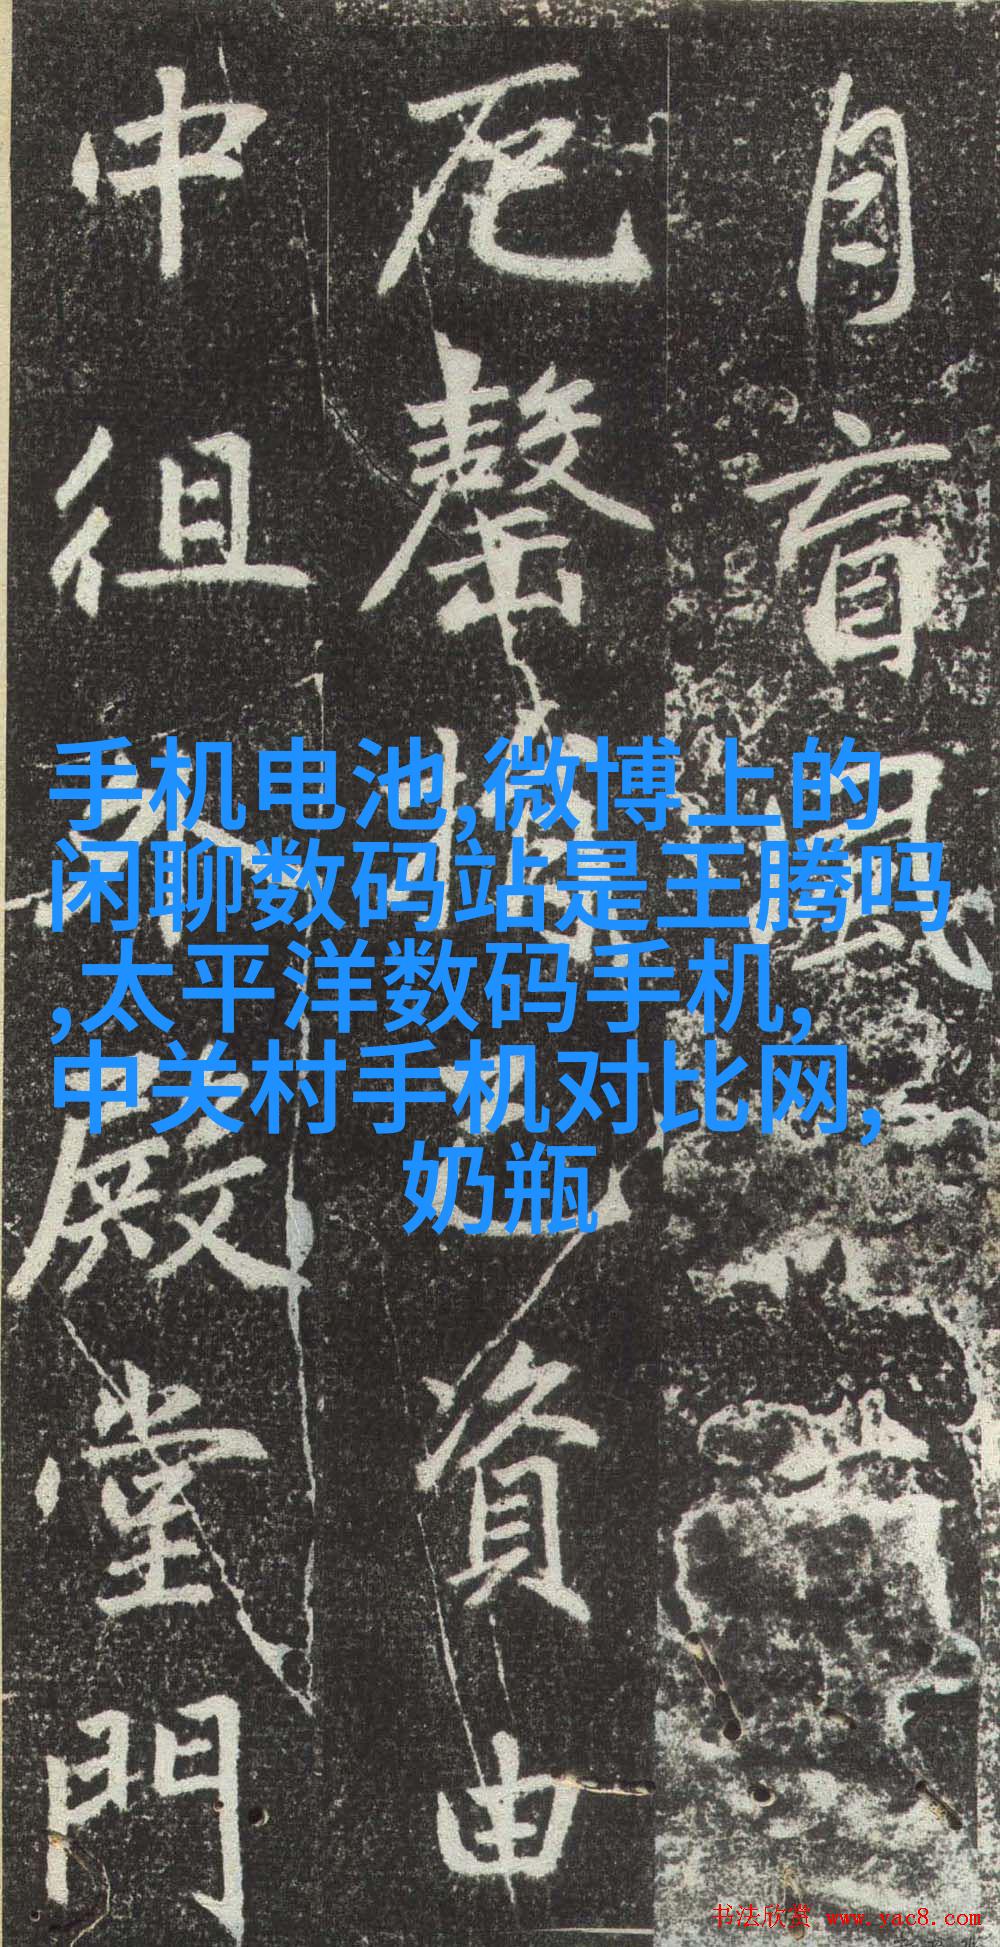 自盲風
卮罄 資由
中徂 殿堂門
手机电池,微博上的
闲聊数码站是王腾吗
,太平洋数码手机,
中关村手机对比网,
奶瓶
书法欣赏 www.yac8.com